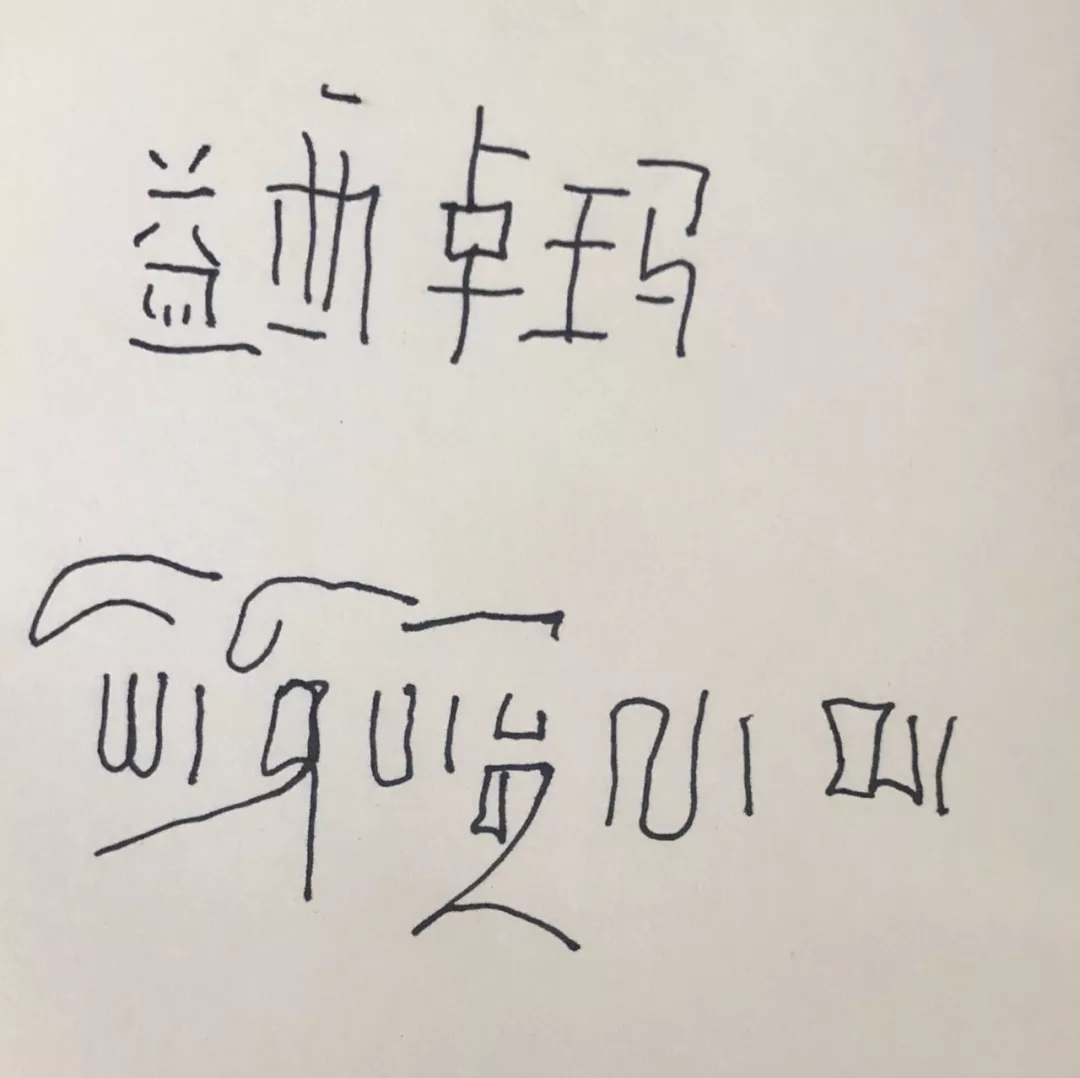 益西卓玛
ཡེ་ཤེས་སྒྲོལ་མ་